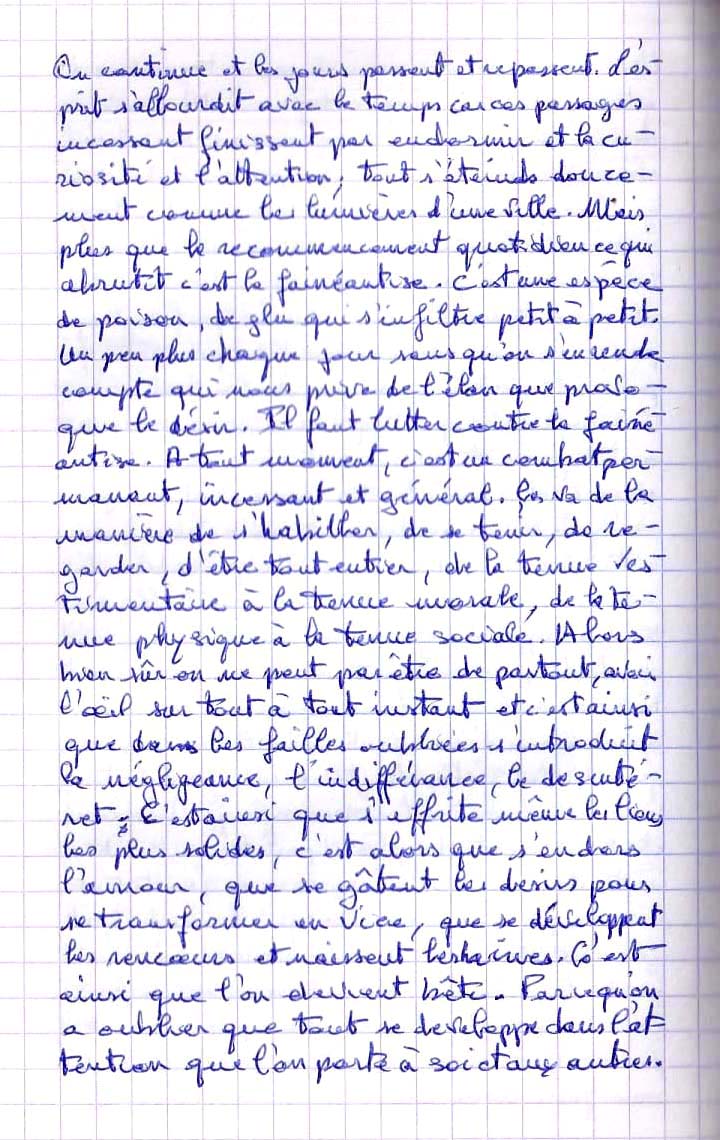 On continue et les jours passent et repassent. L'es-
prit s'allourdit avec le temps car ces passages
incessant finissent par endormir et la cu-
riosité et l'attention, tout s'éteinds douce-
ment comme les lumières d'une ville. Mais
plus que le recommencement quotidien ce qui
abrutit c'est la fainéantise. C'est une espèce
de poison, de glu qui s'infiltre petit à petit.
Un peu plus chaque jour sans qu'on s'en rende
compte qui nous prive de l'élan que provo-
que le désir. Il faut lutter contre la fainé
antise. A tout moment, c'est un combat per-
manant, incessant et général. Ça va de la
manière de s'habiller, de se tenir, de re-
garder, d'être tout entier, de la tenue ves-
timentaire à la tenue morale, de la te-
nue physique à la tenue sociale. Alors
bien sûr on ne peut pas être de partout, avoir
l'œil sur tout à tout instant et c'est ainsi
que dans les failles oubliées s'introduit
la négligeance, l'indifférance, le desinté-
ret. C'est ainsi que s'effrite même les liens
les plus solides, c'est alors que s'endors
l'amour, que se gâtent les desirs pour
se transformer en vice, que se développent
les rencœurs et naissent les haines. C'est
ainsi que l'on devient bête. Parcequ'on
a oublier que tout se developpe dans l'at-
tention que l'on porte à soi et aux autres.